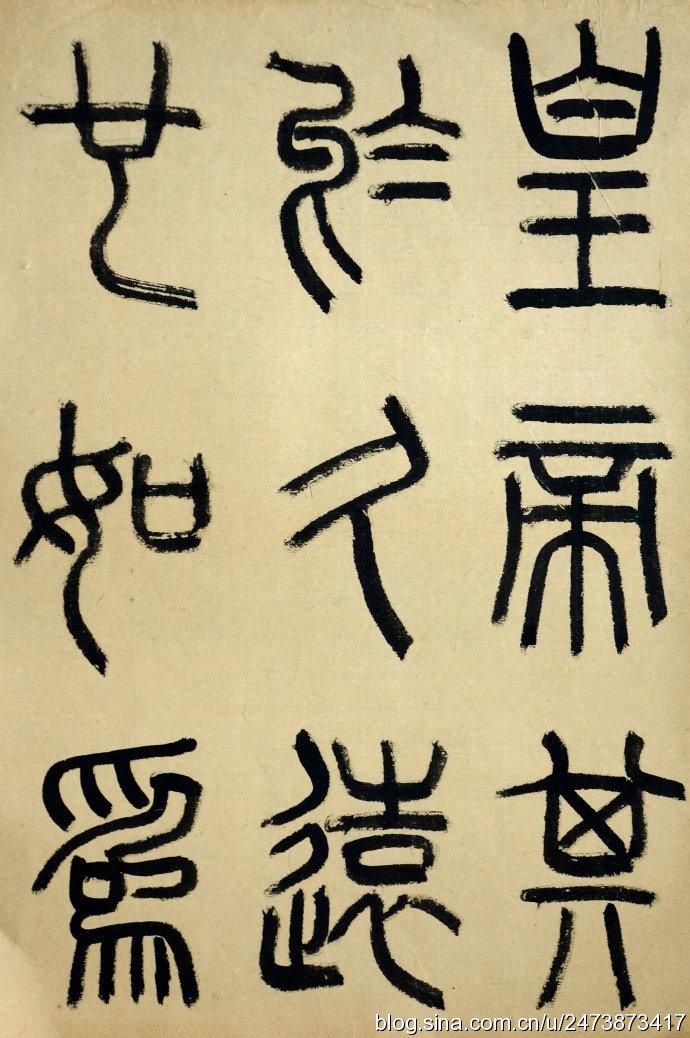 皇帝其
於久遠
也如為
blog.sina.com.cn/u/2473873417